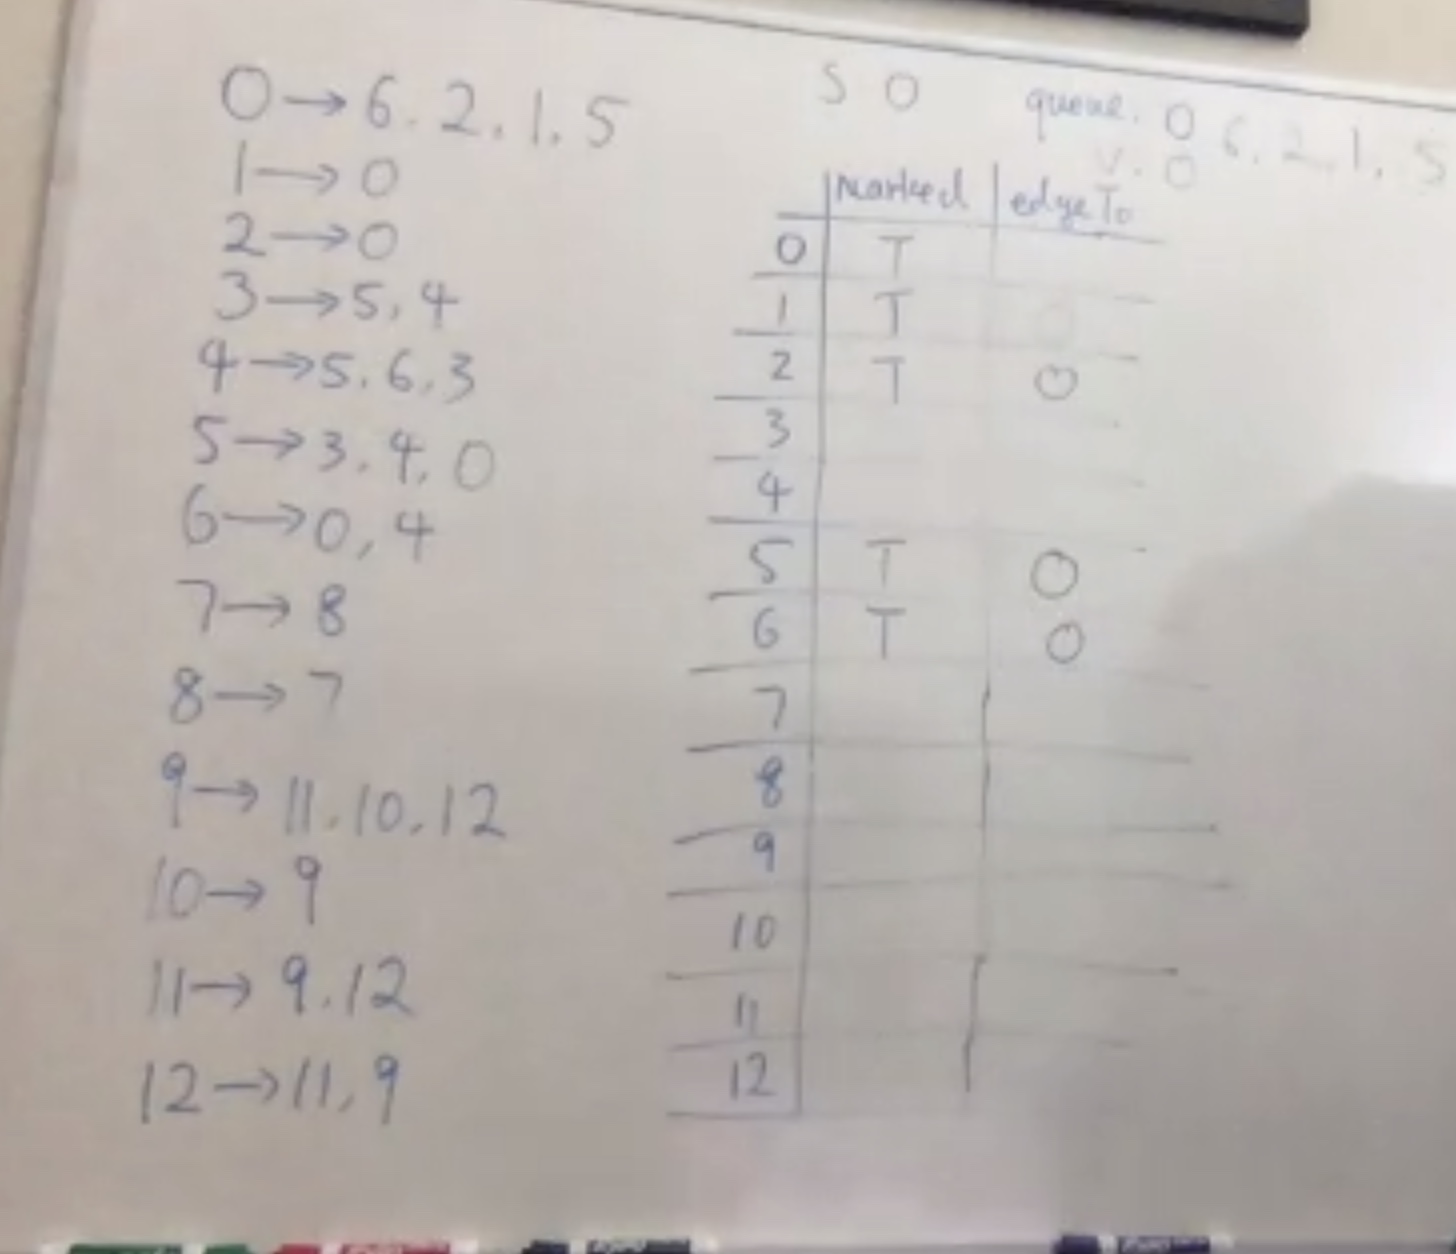 0→6.2.1.5
1→0
2→0
3→5,4
4→5.6.3
5→3.4.0
6→0,4
7→8
8→7
9→11.10.12
10→9
11→9.12
12→11,9
S 0
queue. 0 6.2.1.5
v. 0
marked edgeTo
0 T
1 T
2 T 0
3
4
5 T 0
6 T 0
7
8
9
10
11
12